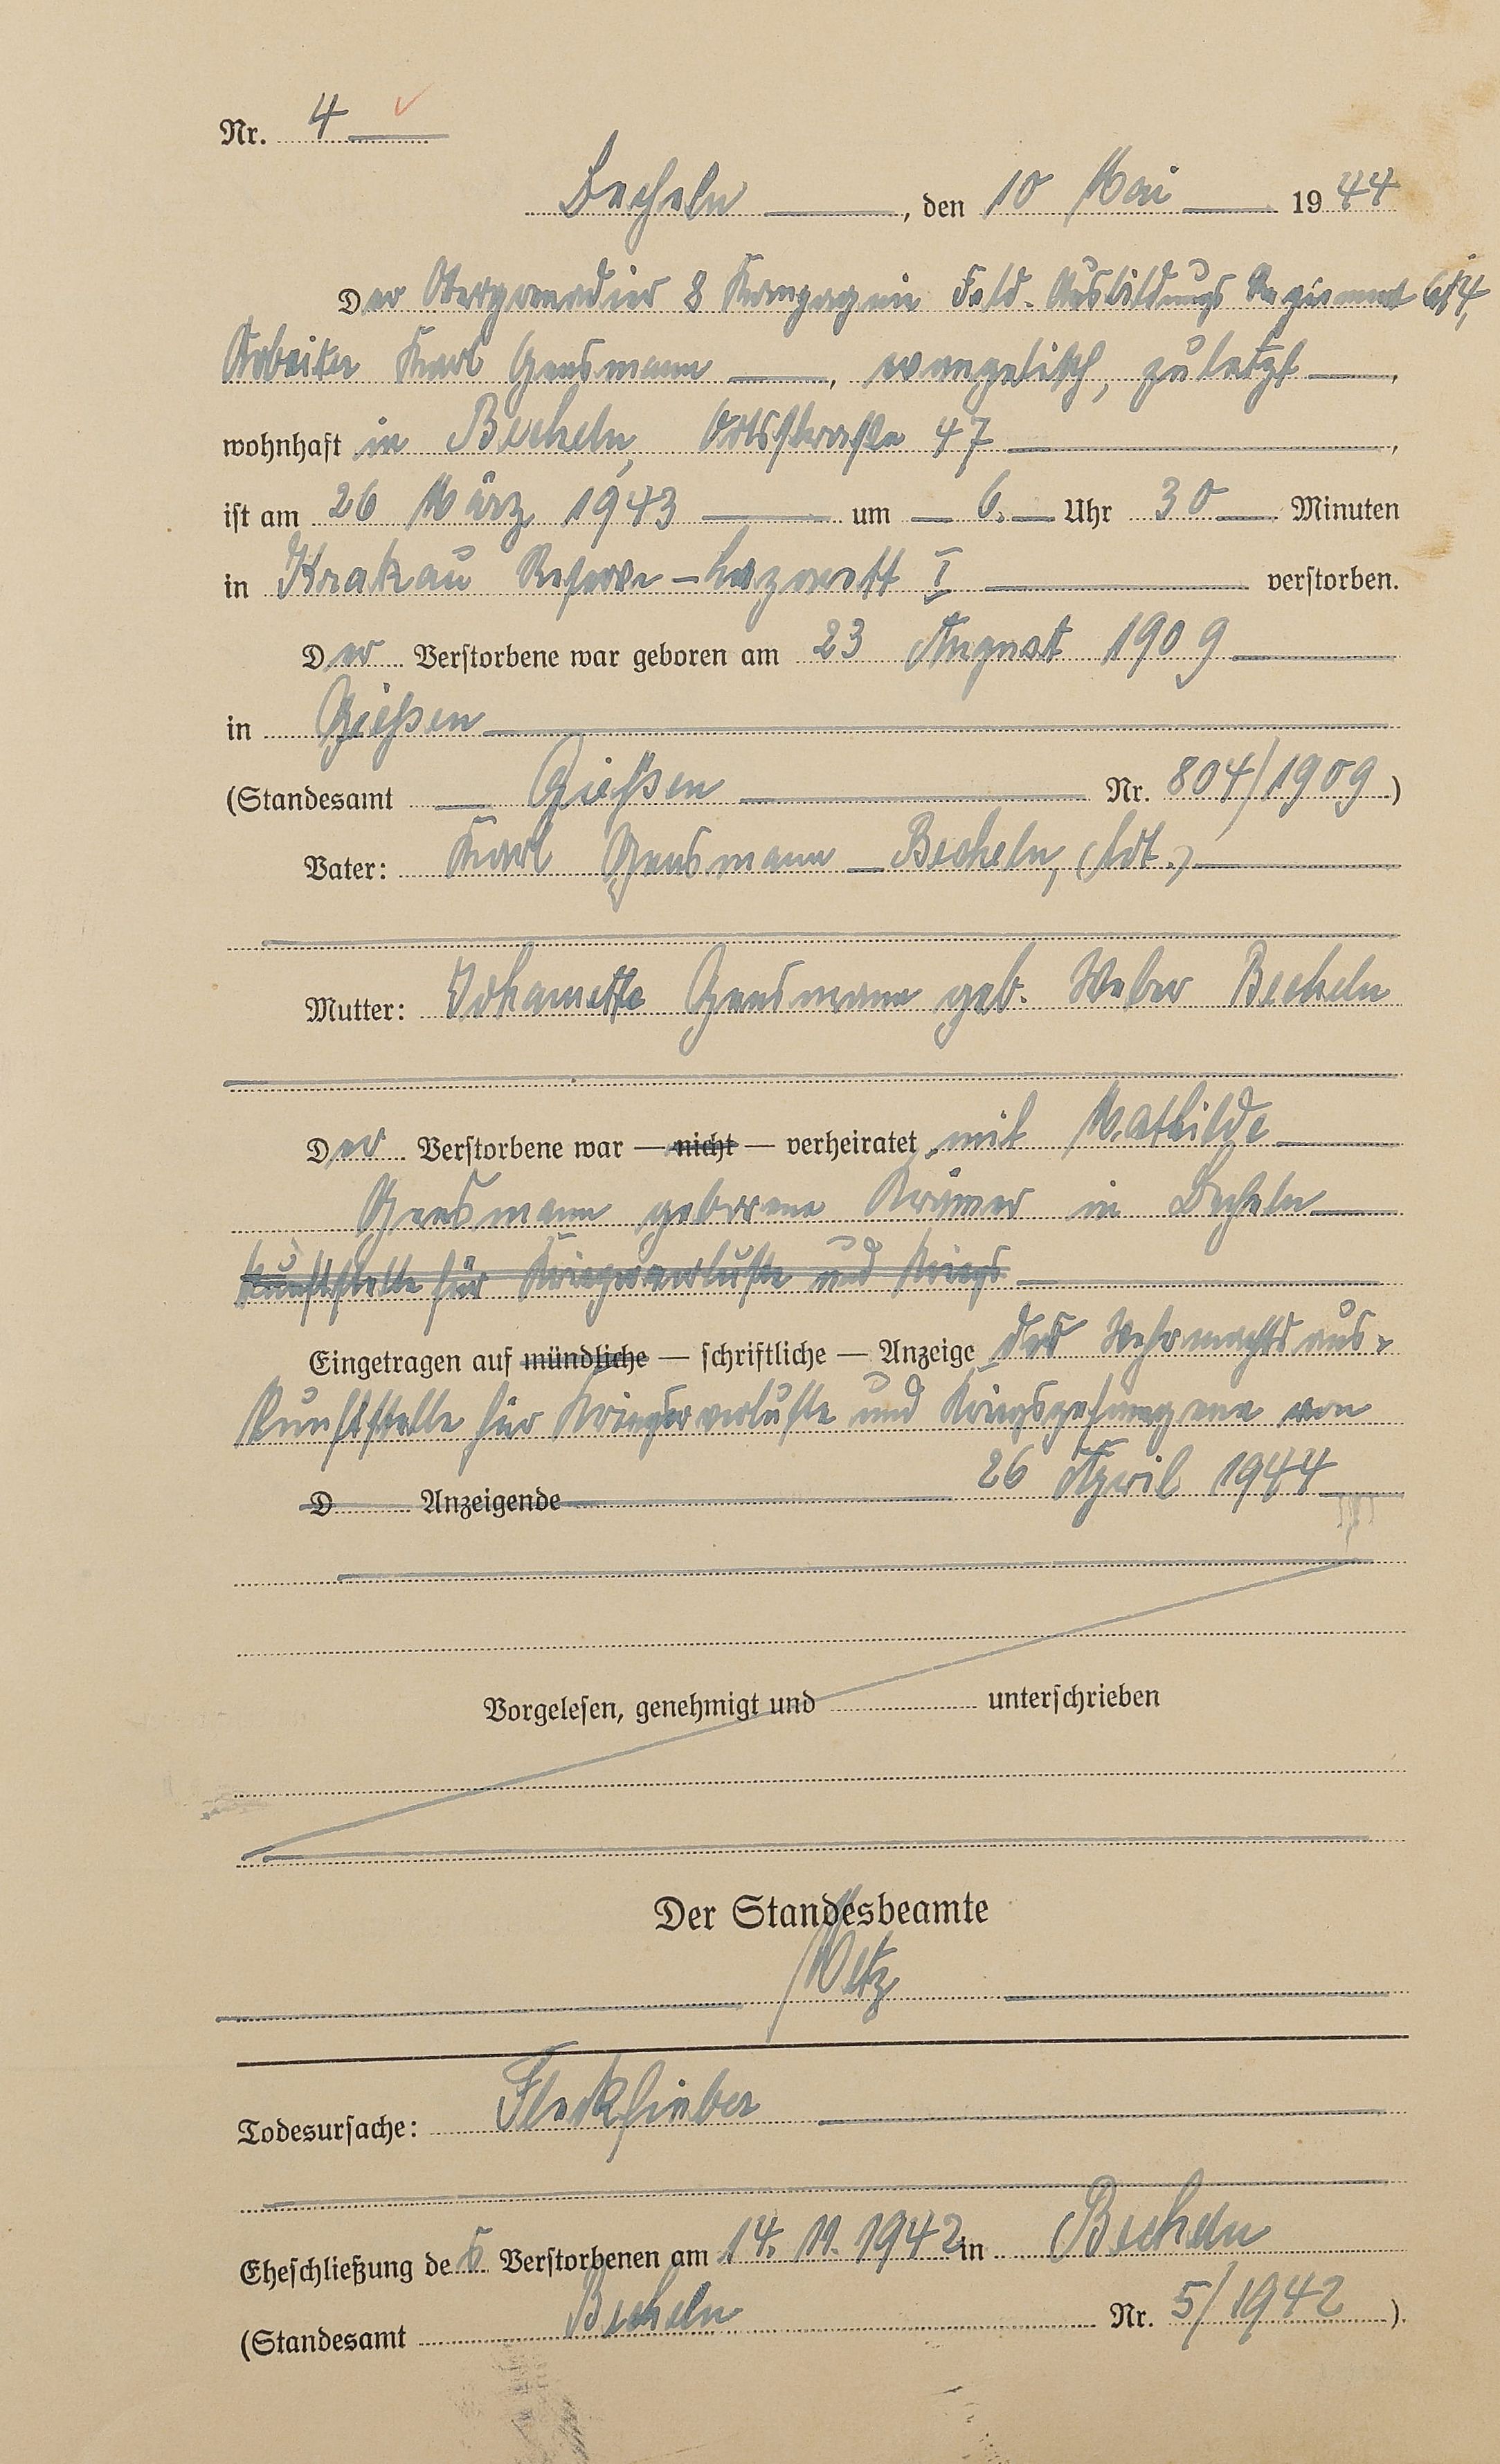 Nr. 4
Becheln, den 10 Mai 1944
Der Obergrenadier 8 Kompagnie Feld-Ausbildungs Regiment
Arbeiter Karl Gensmann, evangelisch, zuletzt,
wohnhaft in Becheln, Ortsstraße 47,
ist am 26 März 1943 um 6. Uhr 30 Minuten
in Krakau Reserve-Lazarett I verstorben.
Der Verstorbene war geboren am 23 August 1909
in Gießen
(Standesamt Gießen Nr. 804/1909)
Vater: Karl Gensmann Becheln,
Mutter: Johanette Gensmann geb. Weber Becheln
Der Verstorbene war — nicht — verheiratet mit Mathilde
Gensmann geborene Krämer in Becheln
kunftstelle für Kriegerverluste und Kriegs
Eingetragen auf mündliche — schriftliche — Anzeige der Wehrmachtsaus-
kunftstelle für Kriegerverluste und Kriegsgefangene von
D Anzeigende 26 April 1944
Vorgelesen, genehmigt und unterschrieben
Der Standesbeamte
Metz
Todesursache: Fleckfieber
Eheschließung des Verstorbenen am 14. 11. 1942 in Becheln
(Standesamt Becheln Nr. 5/1942).